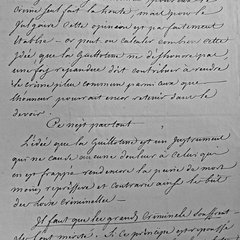 crime qui fait la honte, mais pour le
Salzburg Cette opinion est parfaitement
établie — or peut on calculer combien cette
Idée que la Guillotine ne déshonore pas
une fois repandue doit contribuer à rendre
le crime plus commun parmi ceux que
l'honneur pourrait encor retenir dans le
devoir.
Ce n'est pas tout —
L'idée que la Guillotine est un Instrument
qui ne cause aucune douleur à Celui qui
en est frappé rend encore la peine de mort
moins repressive et contraire aussi le but
des Loix Criminelles —
Il faut que les grands Criminels souffrent